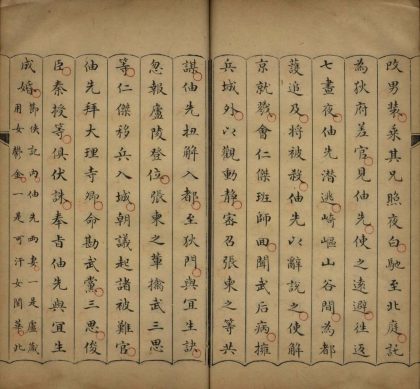 改男装乘其兄照夜白馳至北庭託
為狄府差官見伷先使之遠避往返
七晝夜伷先潛逃崎嶇山谷間為都
護追及將被殺伷先以辭說之使解
京就戮會仁傑班師回聞武后病擁
兵城外以觀動靜密召張柬之等共
謀伷先扭解入都至狄門與宜生訣
忽報廬陵登位張柬之輩擒武三思
等仁傑移兵入城朝議起諸被難官
伷先拜大理寺卿命勘武黨三思俊
臣秦授等俱伏誅奉旨伷先與宜生
成婚節俠記內伷先兩妻一是盧藏
用女鬱金一是可汗女閼華此